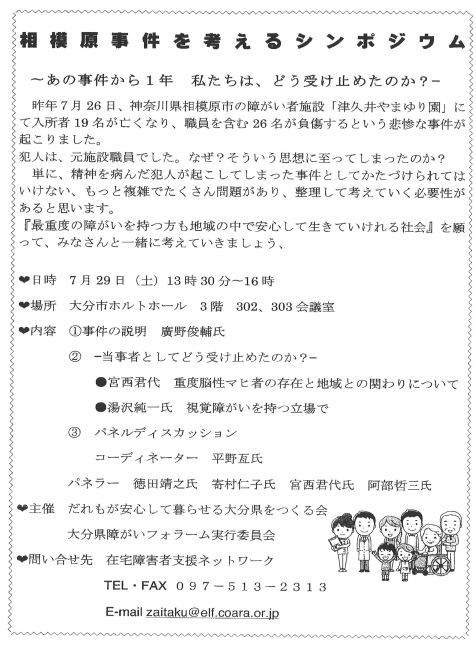 相模原事件を考えるシンポジウム
～あの事件から１年　私たちは、どう受け止めたのか？−
昨年７月２６日、神奈川県相模原市の障がい者施設「津久井やまゆり園」に
て入所者 19 名が亡くなり、職員を含む 26 名が負傷するという悲惨な事件が
起こりました。
犯人は、元施設職員でした。なぜ？そういう思想に至ってしまったのか？
単に、精神を病んだ犯人が起こしてしまった事件としてかたづけられては
いけない、もっと複雑でたくさん問題があり、整理して考えていく必要性が
あると思います。
『最重度の障がいを持つ方も地域の中で安心して生きていけれる社会』を願
って、みなさんと一緒に考えていきましょう、
❤日時　７月 29 日（土）13 時 30 分～16 時
❤場所　大分市ホルトホール　３階　302、303 会議室
❤内容　①事件の説明　廣野俊輔氏
②　−当事者としてどう受け止めたのか？−
●宮西君代　重度脳性マヒ者の存在と地域との関わりについて
●湯沢純一氏　視覚障がいを持つ立場で
③　パネルディスカッション
コーディネーター　平野亙氏
パネラー　徳田靖之氏　寄村仁子氏　宮西君代氏　阿部哲三氏
❤主催　だれもが安心して暮らせる大分県をつくる会
大分県障がいフォーラム実行委員会
❤問い合せ先　在宅障害者支援ネットワーク
TEL・FAX　０９７−５１３−２３１３
E-mail zaitaku@elf.coara.or.jp